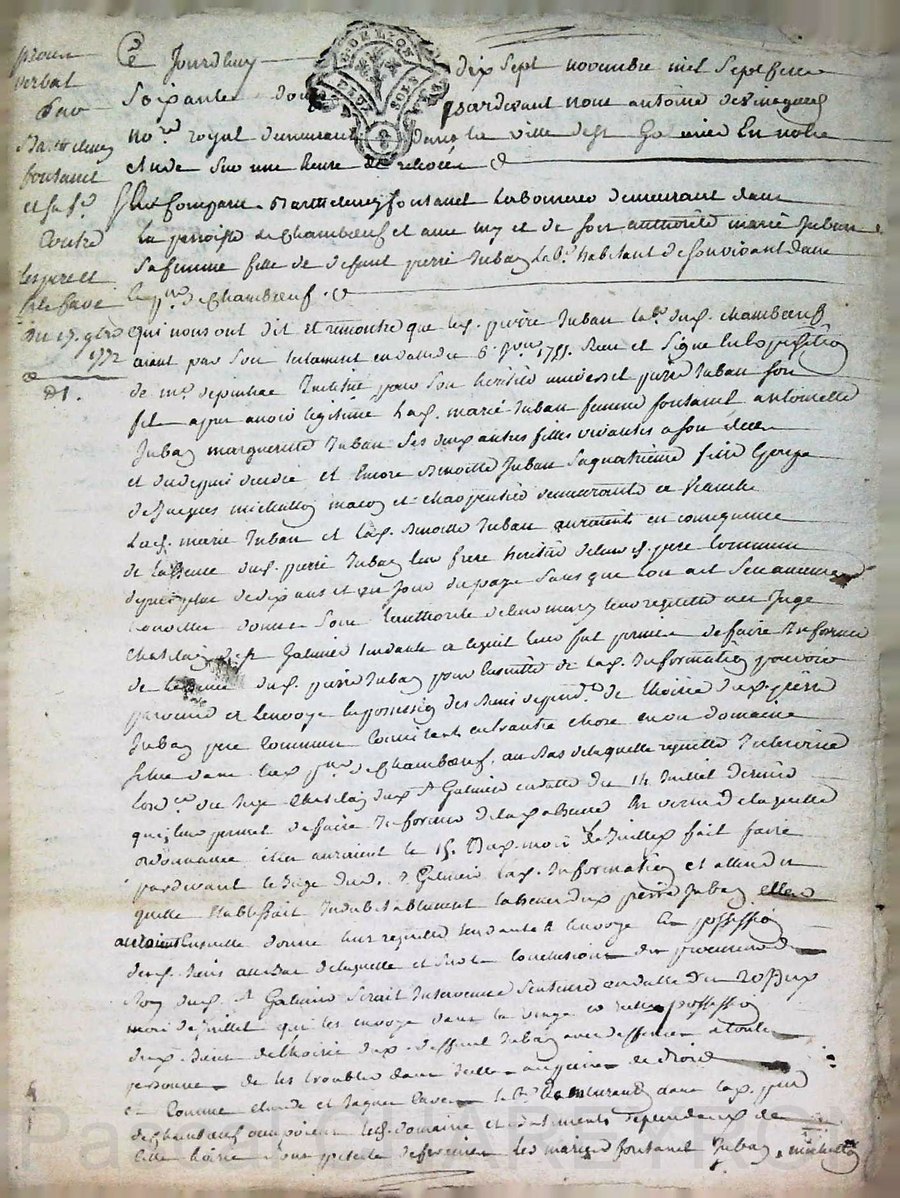 proces
verbal
pour
Barthelemy
fontanet
et sa fe.
Contre
les pere et
fils fave
Du 17. 9bre
1772
DE LYON
DEUX SOLS
Ce Jourdhuy dix sept novembre mil sept cens
Soixante douze pardevant nous antoine
nore. royal demeurant dans la ville de st Galmier En notre
étude sur une heure de relevée
Est Comparu Barthelemy fontanet Laboureur demeurant dans
la paroisse de Chambœuf et avec luy et de son authorité marie Juban
sa femme fille de deffunt pierre Juban Lab.r habitant de son vivant dans
la prse de Chambœuf.
Qui nous ont dit et remontré que led. pierre Juban lab.r dud. Chambœuf
aiant par son testament en datte du 6 1751. Receu et Signé
de me. depinhac Institué pour son heritier universel pierre Juban son
fils apres avoir légitimé lad. marie Juban femme fontanet antoinette
Juban marguerite Juban ses deux autres filles vivantes a son deces
et du depuis decedée et Encore Benoitte Juban sa quatrieme fille Epouse
de Jacques michallon macon et charpentier demeurants a Veauche
Lad. marie Juban et lad. Benoitte Juban auraient en consequence
de labsence dud. pierre Juban leur frere heritier de leurd. pere Commun
depuis plus de dix ans et un Jour du pays sans que lon ait Seu aucunes
nouvelles donné sous lauthorité de leurs marys leur requette au Juge
Chatelain de st Galmier tendante a lequil leur fut permis de faire Informer
de labsence dud. pierre Juban pour Ensuitte de lad. Information pouvoir
prendre et lenvoye En possession des biens dependts. de lhoirie dud. pierre
Juban pere Commun Consistant en Entre autre chose en un domaine
situé dans lad. prse de Chambœuf, au bas de laquelle requette Intervint
lordce. du Juge Chatelain dud. St Galmier en datte du 14 Juillet dernier
qui leur permet de faire Informer de lad. absence En vertu de laquelle
ordonnance elles auraient le 15. dud. mois de Juillet fait faire
pardevant le Juge dud. St Galmier lad. Information et attendu
quelle Etablissait Indubitablement labsence dud. pierre Juban elles
auraient Ensuitte donné leur requette tendante a lenvoye En possession
desd. biens au bas de laquelle et sur les conclusions du procureur du
Roy dud. St Galmier serait Intervenue Sentence en datte du 20 dud.
mois de Juillet qui les envoye dans la vraye et reelle possession
desd. biens de lhoirie dud. deffunt Juban avec deffenses a toutes
personnes de les troubler dans Icelle aux peines de droit
et Comme claude et Jaques fave Lab.rs demeurants dans lad. prse
de Chambœuf occupoient led. domaine et batiments dependants de
lad. hoirie sous pretexte de fermiers les mariés fontanet Juban, michallon